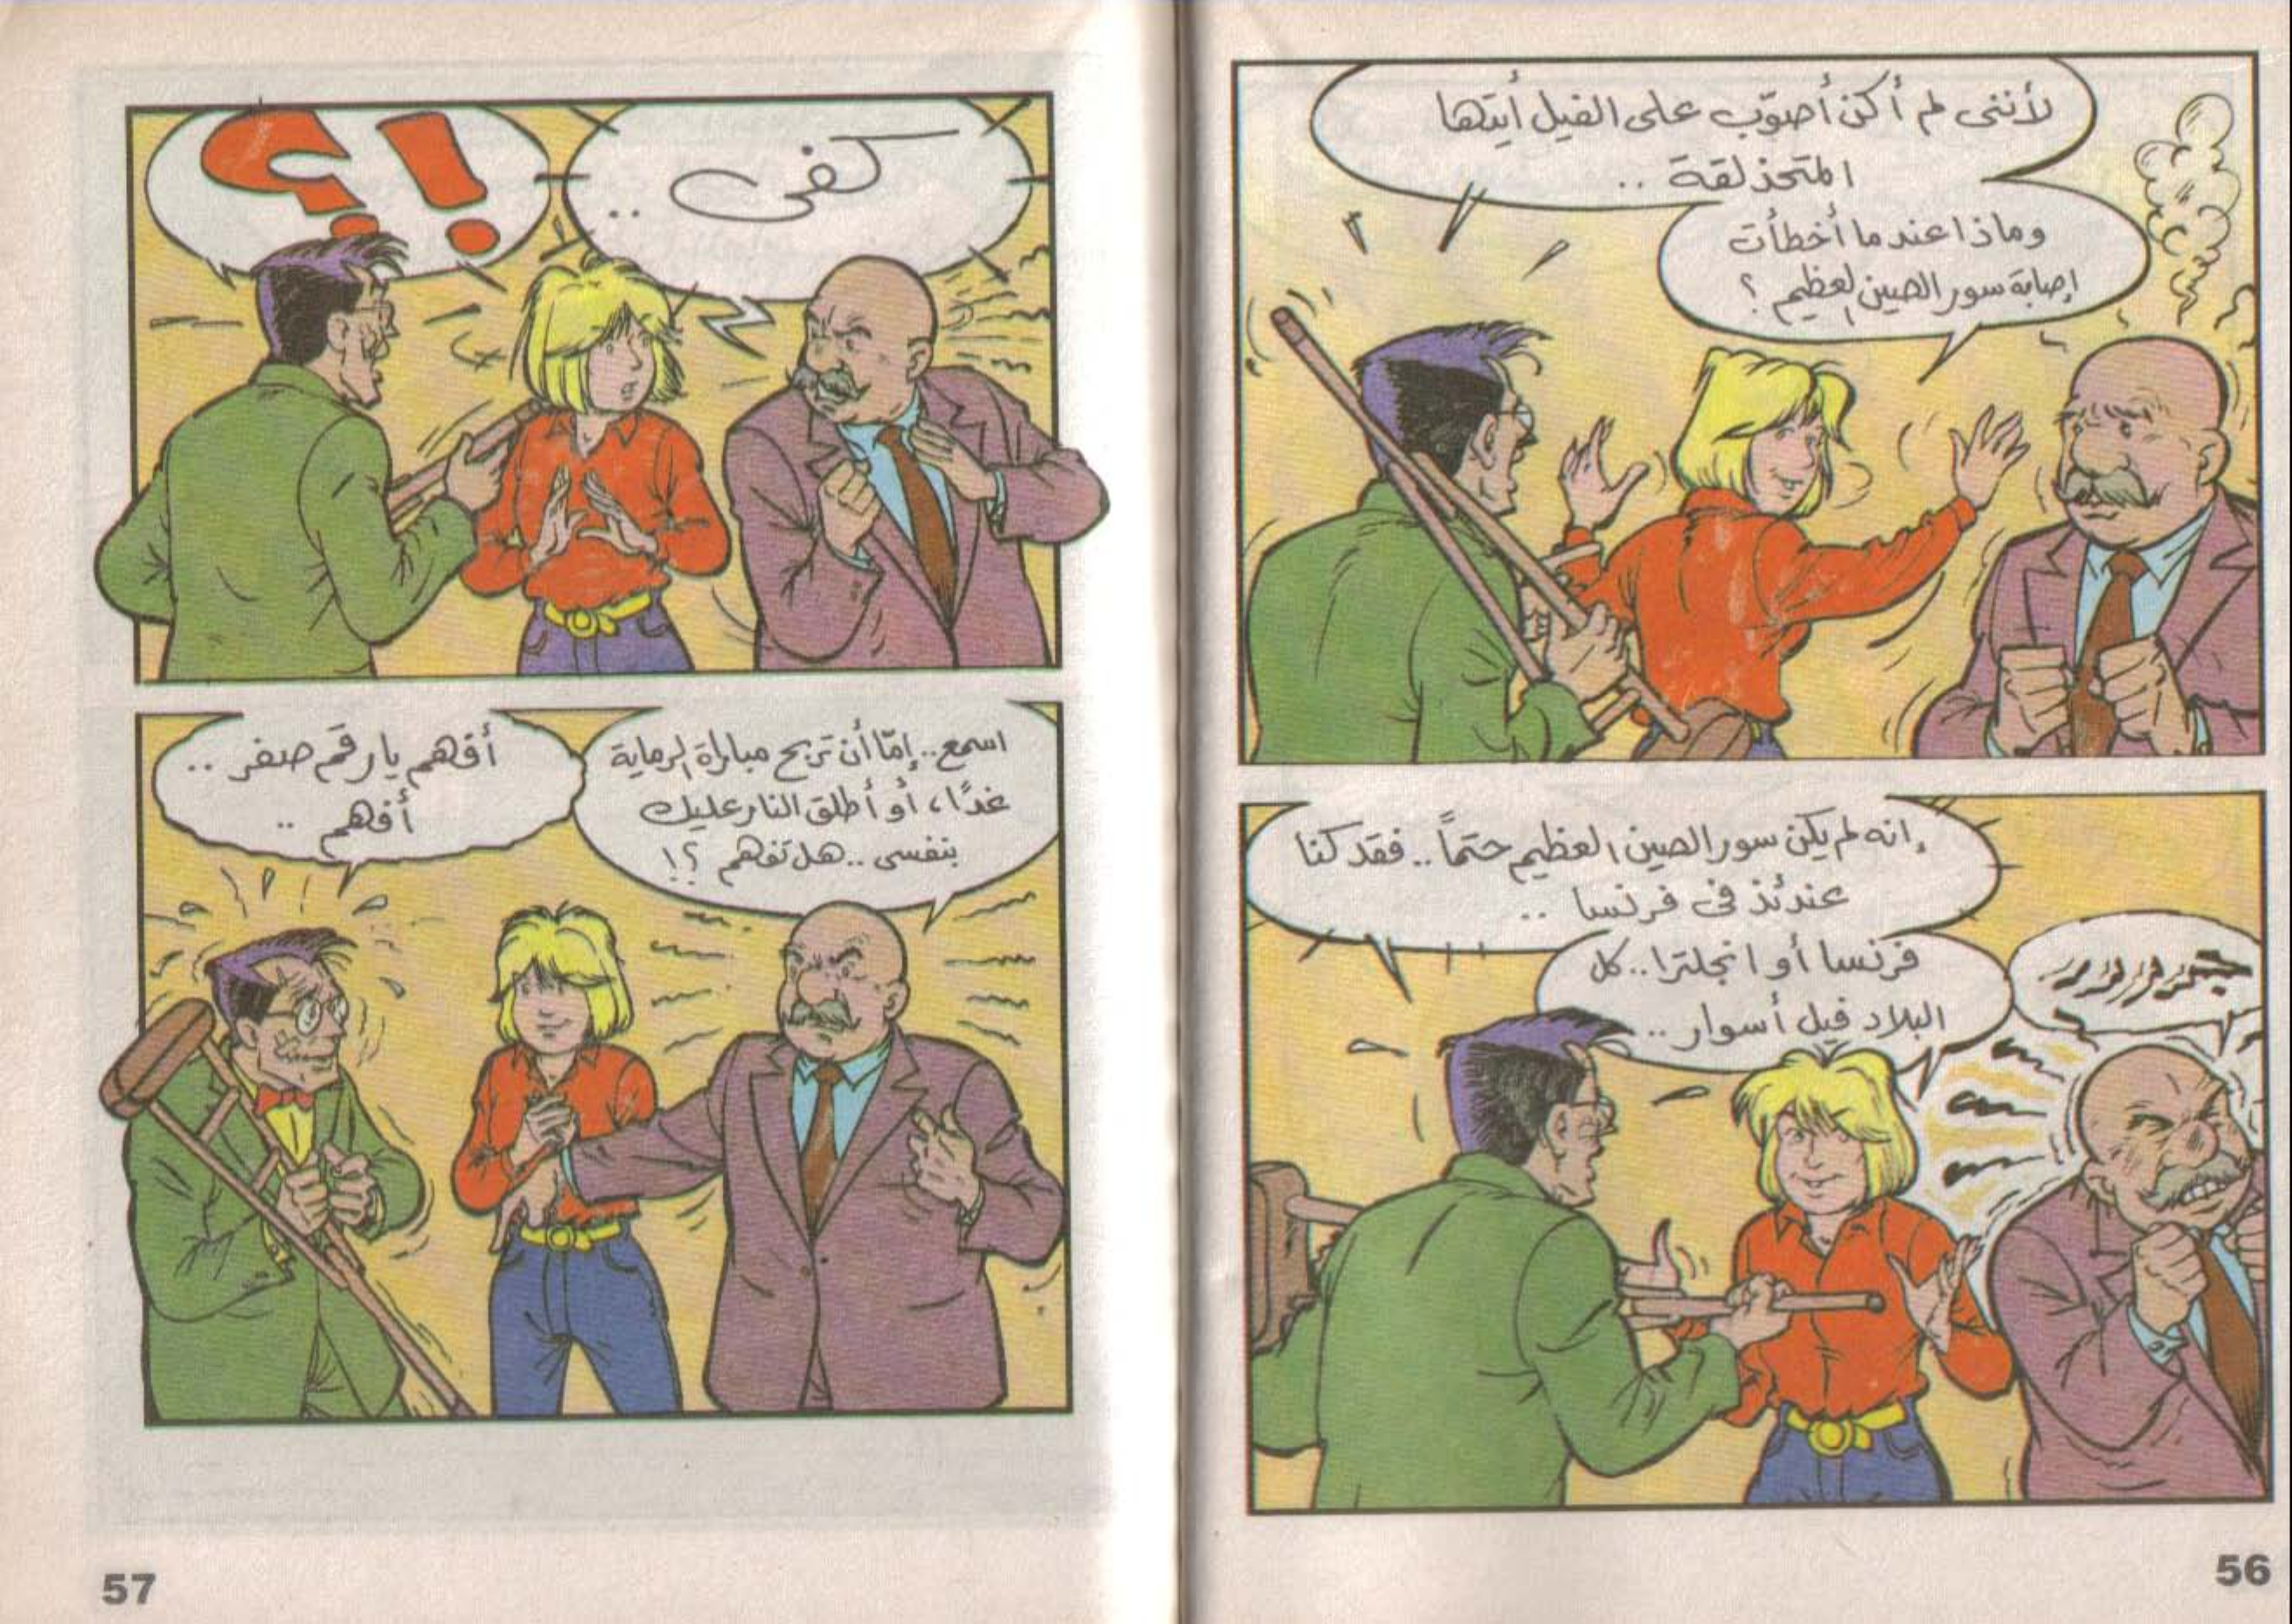 لأننى لم أكن أصوّب على الفيل أيتها
المتحذلقة ..
وماذا عندما أخطأت
إصابة سور الصين العظيم ؟
إنه لم يكن سور الصين العظيم حتماً .. فقد كنا
عندئذ فى فرنسا ..
فرنسا أو انجلترا .. كل
البلاد فيها أسوار ..
56
كفى ..
!؟
اسمع .. إمّا أن تربح مباراة الرماية
غدًا ، أو أطلق النار عليك
بنفسى .. هل تفهم ؟!
أفهم يا رقم صفر ..
أفهم ..
57